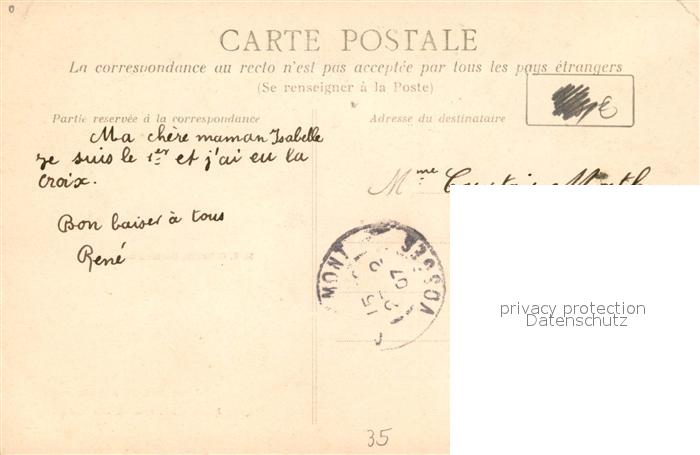 CARTE POSTALE
La correspondance au recto n'est pas acceptée par tous les pays étrangers
(Se renseigner à la Poste)
Partie reservée à la correspondance
Adresse du destinataire
Ma chère maman Isabelle
je suis le 1er et j'ai eu la
croix.
Bon baiser à tous
René
Mme
MONT
VOSGES
15
07
35
privacy protection
Datenschutz